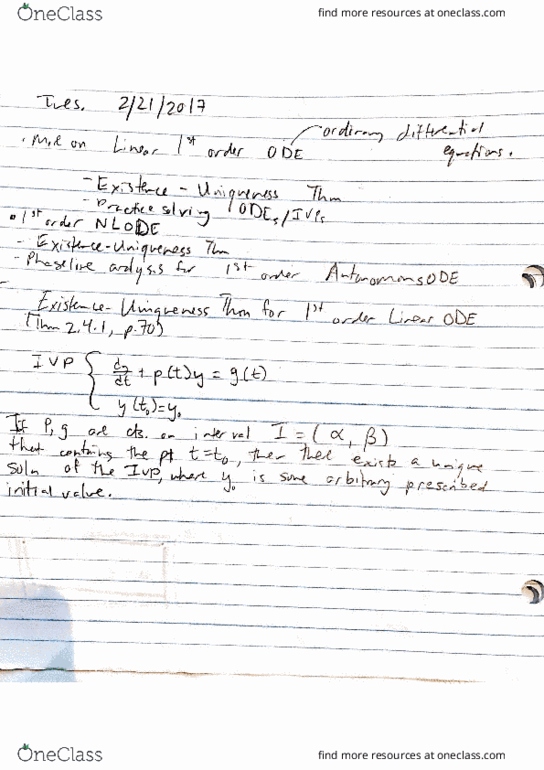 OneClass
find more resources at oneclass.com
Tues. 2/21/2017
• More on Linear 1st order ODE
ordinary differential
equations.
- Existence - Uniqueness Thm
- Practice solving ODEs/IVPs
• 1st order NLODE
- Existence-Uniqueness Thm
- Phaseline analysis for 1st order Autonomous ODE
Existence-Uniqueness Thm for 1st order Linear ODE
(Thm 2.4.1, p.70)
IVP { dy/dt + p(t)y = g(t)
y(t₀)=y₀
If P, g are cts. on interval I = (α, β)
that contains the pt t=t₀, then there exists a unique
soln of the IVP, where y₀ is some arbitrary prescribed
initial value.
OneClass
find more resources at oneclass.com